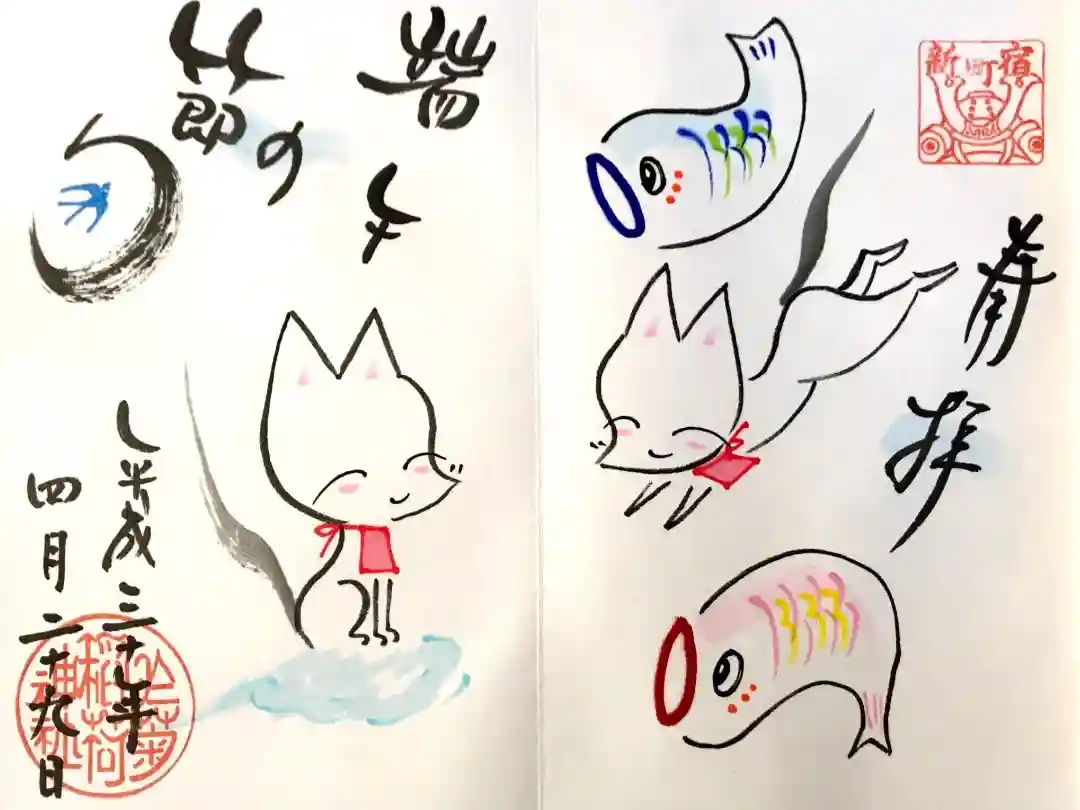 新町宿
奉拝
端午
の
節句
平成三十年
四月二十九日
於菊
稲荷
神社